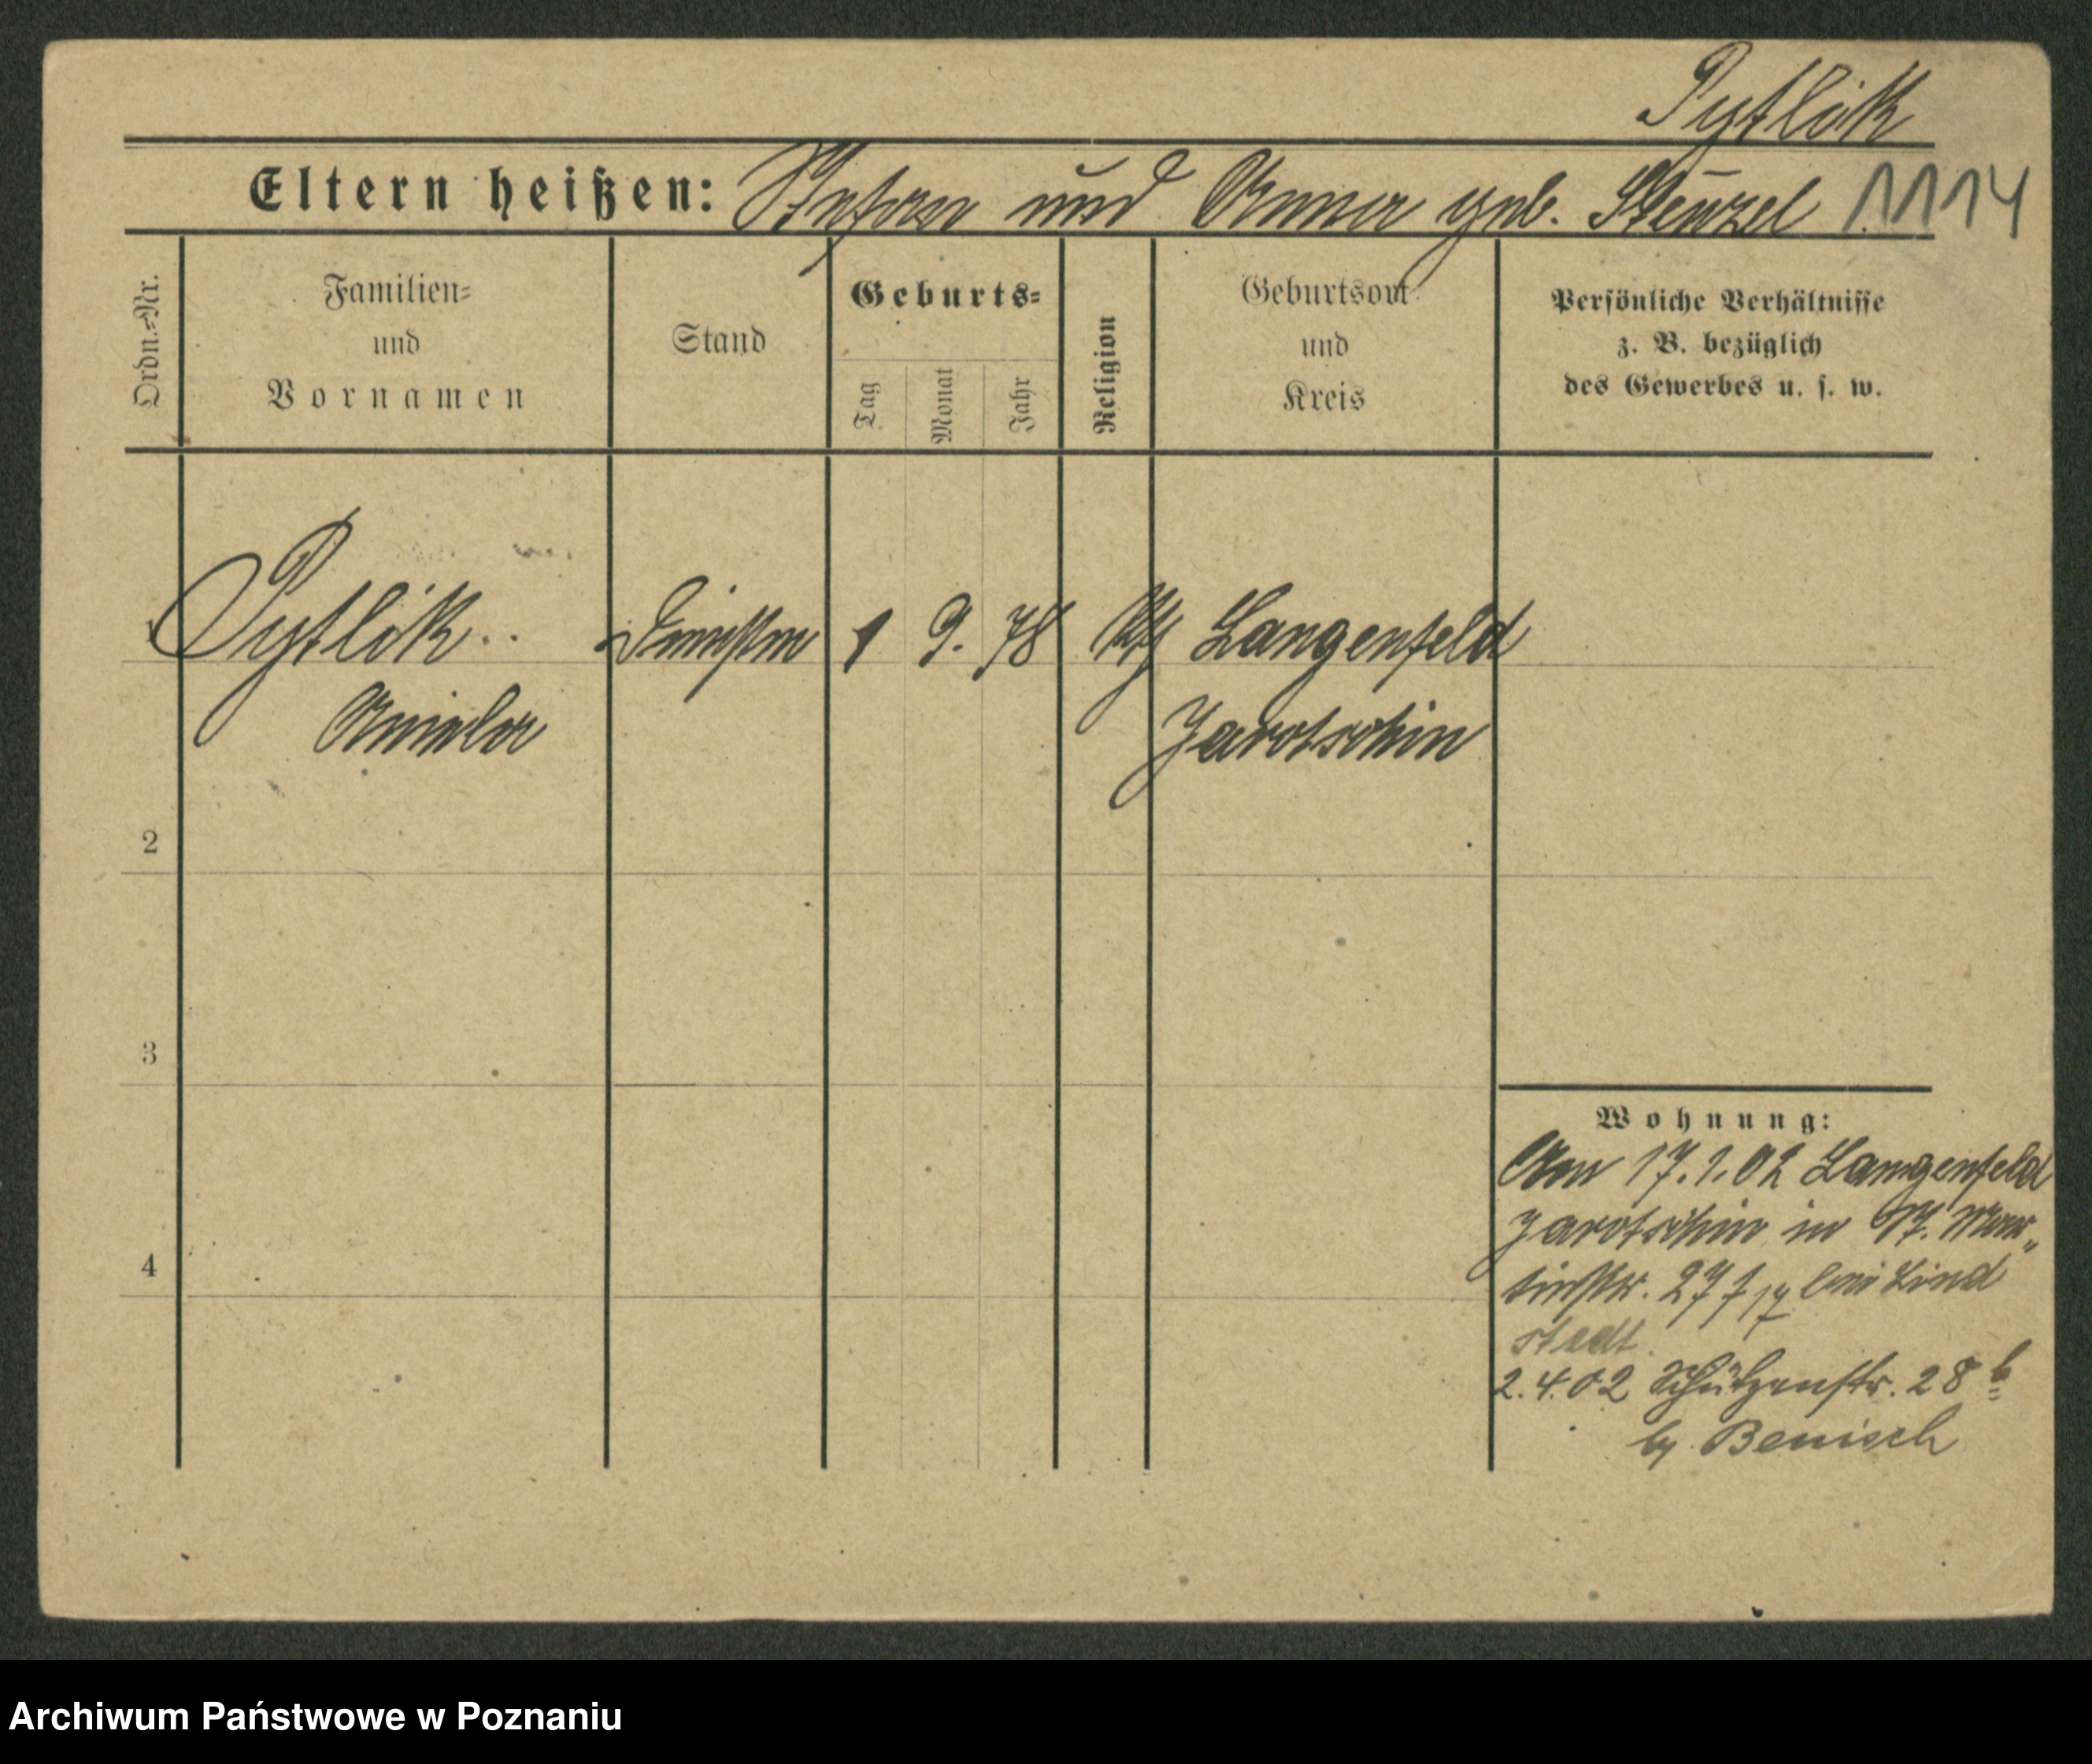 Pytlik
Eltern heißen: Stefan und Anna geb. Stenzel 1114
Ordn.-Nr.
Familien-
und
Vornamen
Stand
Geburts-
Tag
Monat
Jahr
Religion
Geburtsort
und
Kreis
Persönliche Verhältnisse
z. B. bezüglich
des Gewerbes u. s. w.
1 Pytlik 1 9. 78 Langenfeld
Aniela Jarotschin
2
3
4
Wohnung:
Am 17.1.02 Langenfeld
Jarotschin in St. Mar„
tinstr. 27 bei Lind
stedt.
2.4.02 Schützenstr. 28 b
by Benisch
Archiwum Państwowe w Poznaniu